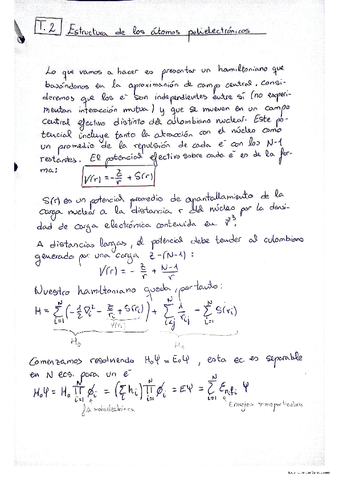 T.2 Estructura de los átomos polielectrónicos
Lo que vamos a hacer es presentar un hamiltoniano que
basándonos en la aproximación de campo central, consi-
deremos que los e⁻ son independientes entre sí (no experi-
mentan interacción mutua) y que se mueven en un campo
central efectivo distinto del culombiano nuclear. Este po-
tencial incluye tanto la atracción con el núcleo como
un promedio de la repulsión de cada e⁻ con los N-1
restantes. El potencial efectivo sobre cada e⁻ es de la for-
ma:
V(r) = -Z/r + S(r)
S(r) es un potencial promedio de apantallamiento de la
carga nuclear a la distancia r del núcleo por la densi-
dad de carga electrónica contenida en r³.
A distancias largas, el potencial debe tender al culombiano
generado por una carga Z-(N-1):
V(r) = - Z/r + N-1/r
Nuestro hamiltoniano queda, por tanto:
H = Σᵢ₌₁ᴺ (-½ ∇ᵢ² - Z/rᵢ + S(rᵢ)) + Σᵢ<ⱼᴺ 1/rᵢⱼ - Σᵢ₌₁ᴺ S(rᵢ)
V(rᵢ)
H₀ H₁
Comenzamos resolviendo H₀Ψ = E₀Ψ, esta ec es separable
en N ecs. para un e⁻
H₀Ψ = H₀ ∏ᵢ₌₁ᴺ ϕᵢ = (Σ hᵢ) ∏ᵢ₌₁ᴺ ϕᵢ = EΨ = Σᵢ₌₁ᴺ Eₙᵢℓᵢ Ψ
f. monoelectrónica Energías monoparticulares